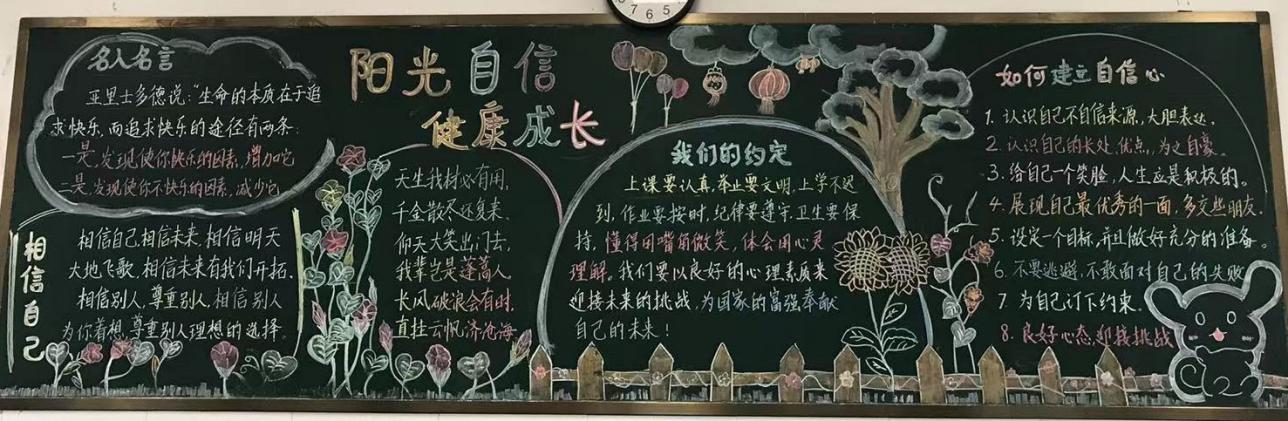 7 6 5
阳光自信
健康成长
名人名言
亚里士多德说:“生命的本质在于追
求快乐,而追求快乐的途径有两条:
一是,发现使你快乐的因素,增加它
二是,发现使你不快乐的因素,减少它
相信自己
相信自己,相信未来,相信明天
大地飞歌,相信未来有我们开拓.
相信别人,尊重别人,相信别人
为你着想,尊重别人理想的选择。
天生我材必有用,
千金散尽还复来.
仰天大笑出门去,
我辈岂是蓬蒿人
长风破浪会有时,
直挂云帆济沧海
我们的约定
上课要认真,举止要文明,上学不迟
到,作业要按时,纪律要遵守,卫生要保
持,懂得用嘴角微笑,体会用心灵
理解,我们要以良好的心理素质来
迎接未来的挑战,为国家的富强奉献
自己的未来!
如何建立自信心
1.认识自己不自信来源,大胆表达.
2.认识自己的长处,优点,为之自豪。
3.给自己一个笑脸,人生应是积极的。
4.展现自己最优秀的一面,多交些朋友.
5.设定一个目标,并且做好充分的准备。
6.不要逃避,不敢面对自己的失败
7为自己订下约束。
8.良好心态,迎接挑战